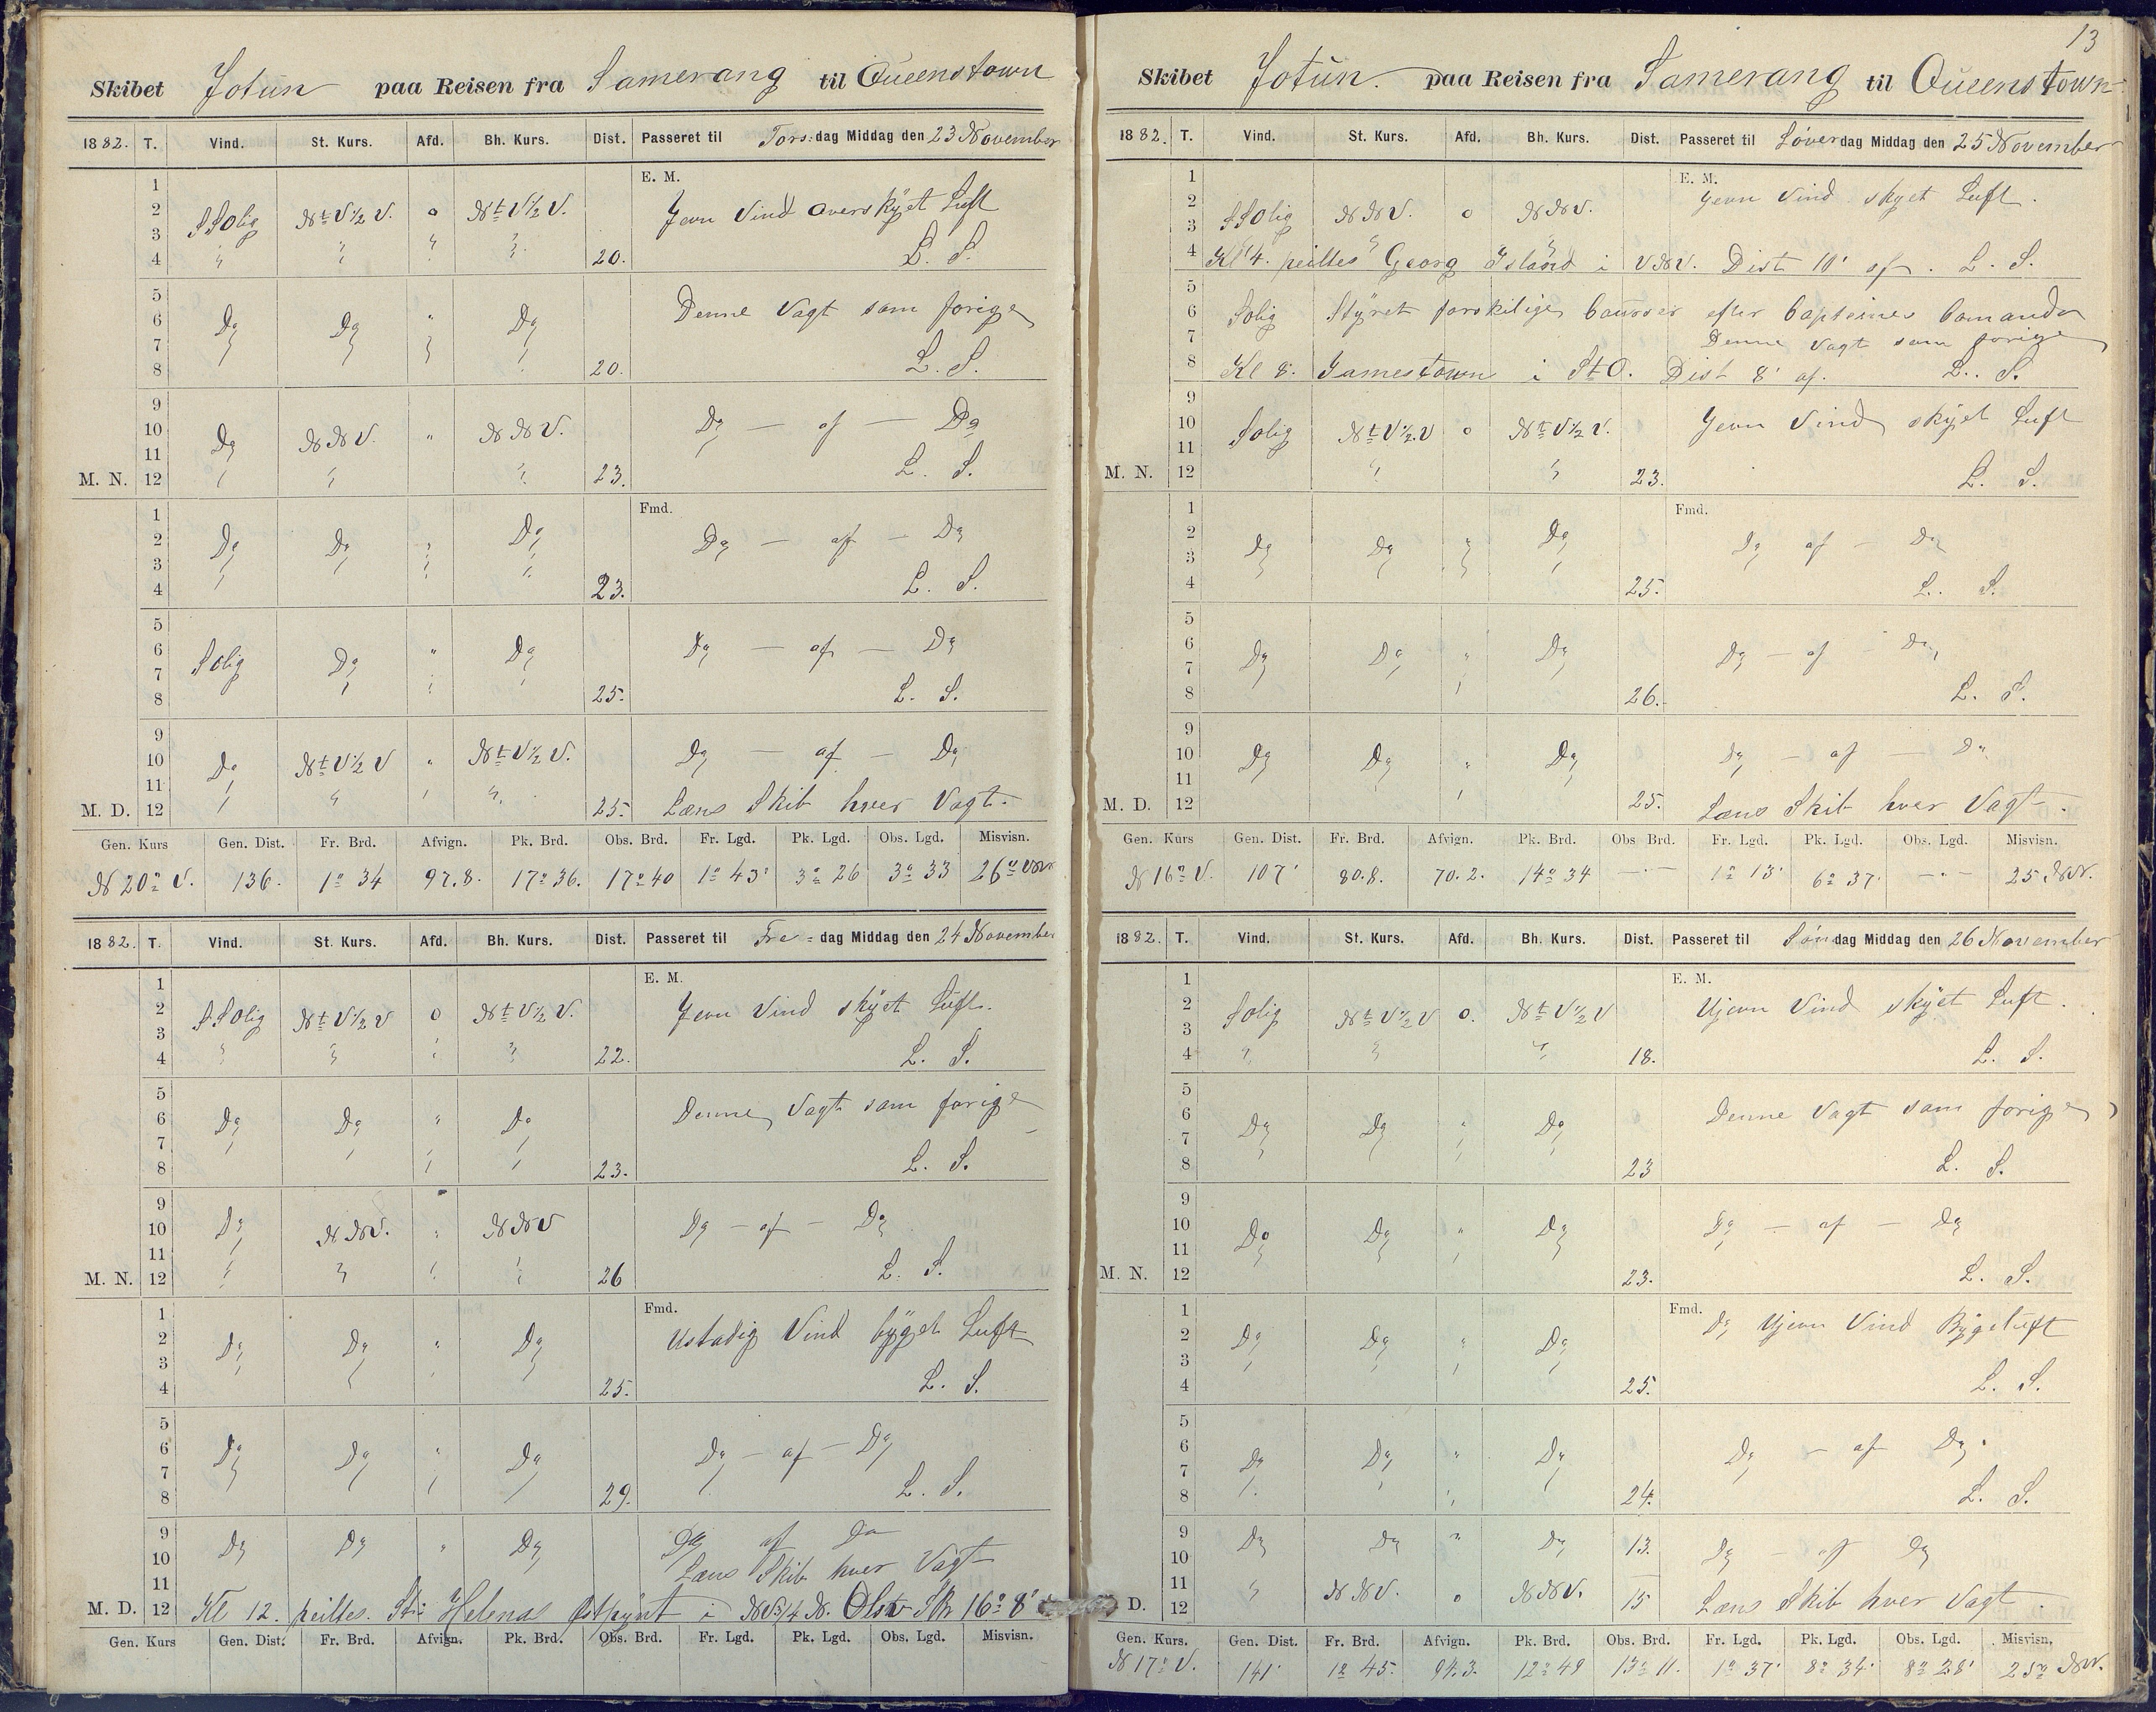 Skibet Jotun paa Reisen fra Samerang til Queenstown
1882. T. Vind. St. Kurs. Afd. Bh. Kurs. Dist. Passeret til Torsdag Middag den 23 November
E. M.
1
2 SSOlig NtV½V. 0 NtV½V. Jevn Vind Overskyet Luft
3
4 " " " " 20. L. S.
5
6 Do Do " Do Denne Vagt som forige
7
8 20. L. S.
9
10 Do NNV. " NNV. Do — af — Do
11
M. N. 12 23. L. S.
Fmd.
1
2 Do Do " Do Do — af — Do
3
4 23. L. S.
5
6 SOlig Do " Do Do — af — Do
7
8 25. L. S.
9
10 Do NtV½V " NtV½V. Do — af — Do
11
M. D. 12 " " " 25. Læns Skib hver Vagt.
Gen. Kurs Gen. Dist. Fr. Brd. Afvign. Pk. Brd. Obs. Brd. Fr. Lgd. Pk. Lgd. Obs. Lgd. Misvisn.
N 20° V. 136. 1° 34 97.8. 17° 36. 17° 40 1° 43' 3° 26 3° 33 26°
1882. T. Vind. St. Kurs. Afd. Bh. Kurs. Dist. Passeret til Fre= dag Middag den 24 November
E. M.
1
2 SSOlig NtV½V 0 NtV½V. Jevn Vind skyet Luft.
3
4 " " " " 22. L. S.
5
6 Do Do " Do Denne Vagt som forige
7
8 23. L. S.
9
10 Do NNV. " NNV Do — af — Do
11
M. N. 12 " " " " 26 L. S.
Fmd.
1
2 Do Do " Do Ustadig Vind byget Luft
3
4 25. L. S.
5
6 Do Do " Do Do — af — Do
7
8 29. L. S.
9 Do Do " Do Do af Do
10
11 Læns Skib hver Vagt
M. D. 12 Kl 12. peiltes. St: Helenas Østpynt i NV3/4N.
Gen. Kurs Gen. Dist. Fr. Brd. Afvign. Pk. Brd. Obs. Brd. Fr. Lgd. Pk. Lgd. Obs. Lgd. Misvisn.
13
Skibet Jotun. paa Reisen fra Samerang til Queenstown
1882. T. Vind. St. Kurs. Afd. Bh. Kurs. Dist. Passeret til Løverdag Middag den 25 November
E. M.
1 Jevn Vind skyet Luft.
2
3 SSOlig NNV. 0 NNV.
4 Kl 4. peiltes Georg Island i VNV. Dist 10' af. L. S.
5
6 SOlig Styret forskilige Courser efter Capteines Comando
7 Denne Vagt som forige
8 Kl 8. Jamestown i StO. Dist 8' af. L. S.
9
10 SOlig NtV½V 0 NtV½V. Jevn Vind skyet Luft
11
M. N. 12 " " 23. L. S.
Fmd.
1
2 Do Do " Do Do af — Do
3
4 25. L. S.
5
6 Do Do " Do Do — af — Do
7
8 26. L. S.
9
10 Do Do " Do Do — af — Do
11
M. D. 12 25. Læns Skib hver Vagt.
Gen. Kurs Gen. Dist. Fr. Brd. Afvign. Pk. Brd. Obs Brd. Fr. Lgd. Pk. Lgd. Obs. Lgd. Misvisn.
N 16° V. 107' 80.8. 70.2. 14° 34 — " — 1° 13' 6° 37' — " — 25 NV.
1882. T. Vind. St. Kurs. Afd. Bh. Kurs. Dist. Passeret til Søndag Middag den 26 November
E. M.
1
2 SOlig NtV½V 0. NtV½V Ujevn Vind skyet Luft.
3
4 " " " 18. L. S.
5
6 Do Do " Do Denne Vagt som forige
7
8 23 L. S.
9
10 Do Do " Do Do — af — Do
11
M. N. 12 23. L. S.
Fmd.
1 Do Ujevn Vind Bygeluft
2 Do Do " Do
3
4 25. L. S.
5
6 Do Do " Do Do — af Do
7
8 24. L. S.
9 Do Do " Do 13. Do — af Do
10
11 " NNV. 0 NNV. 15 Læns Skib hver Vagt.
D. 12
Gen. Kurs. Gen. Dist. Fr. Brd. Afvign. Pk. Brd. Obs. Brd. Fr. Lgd. Pk. Lgd. Obs. Lgd. Misvisn.
N 17° V. 141' 1° 45. 94.3. 12° 49 13° 11. 1° 37' 8° 34' 8° 28' 25° NV.